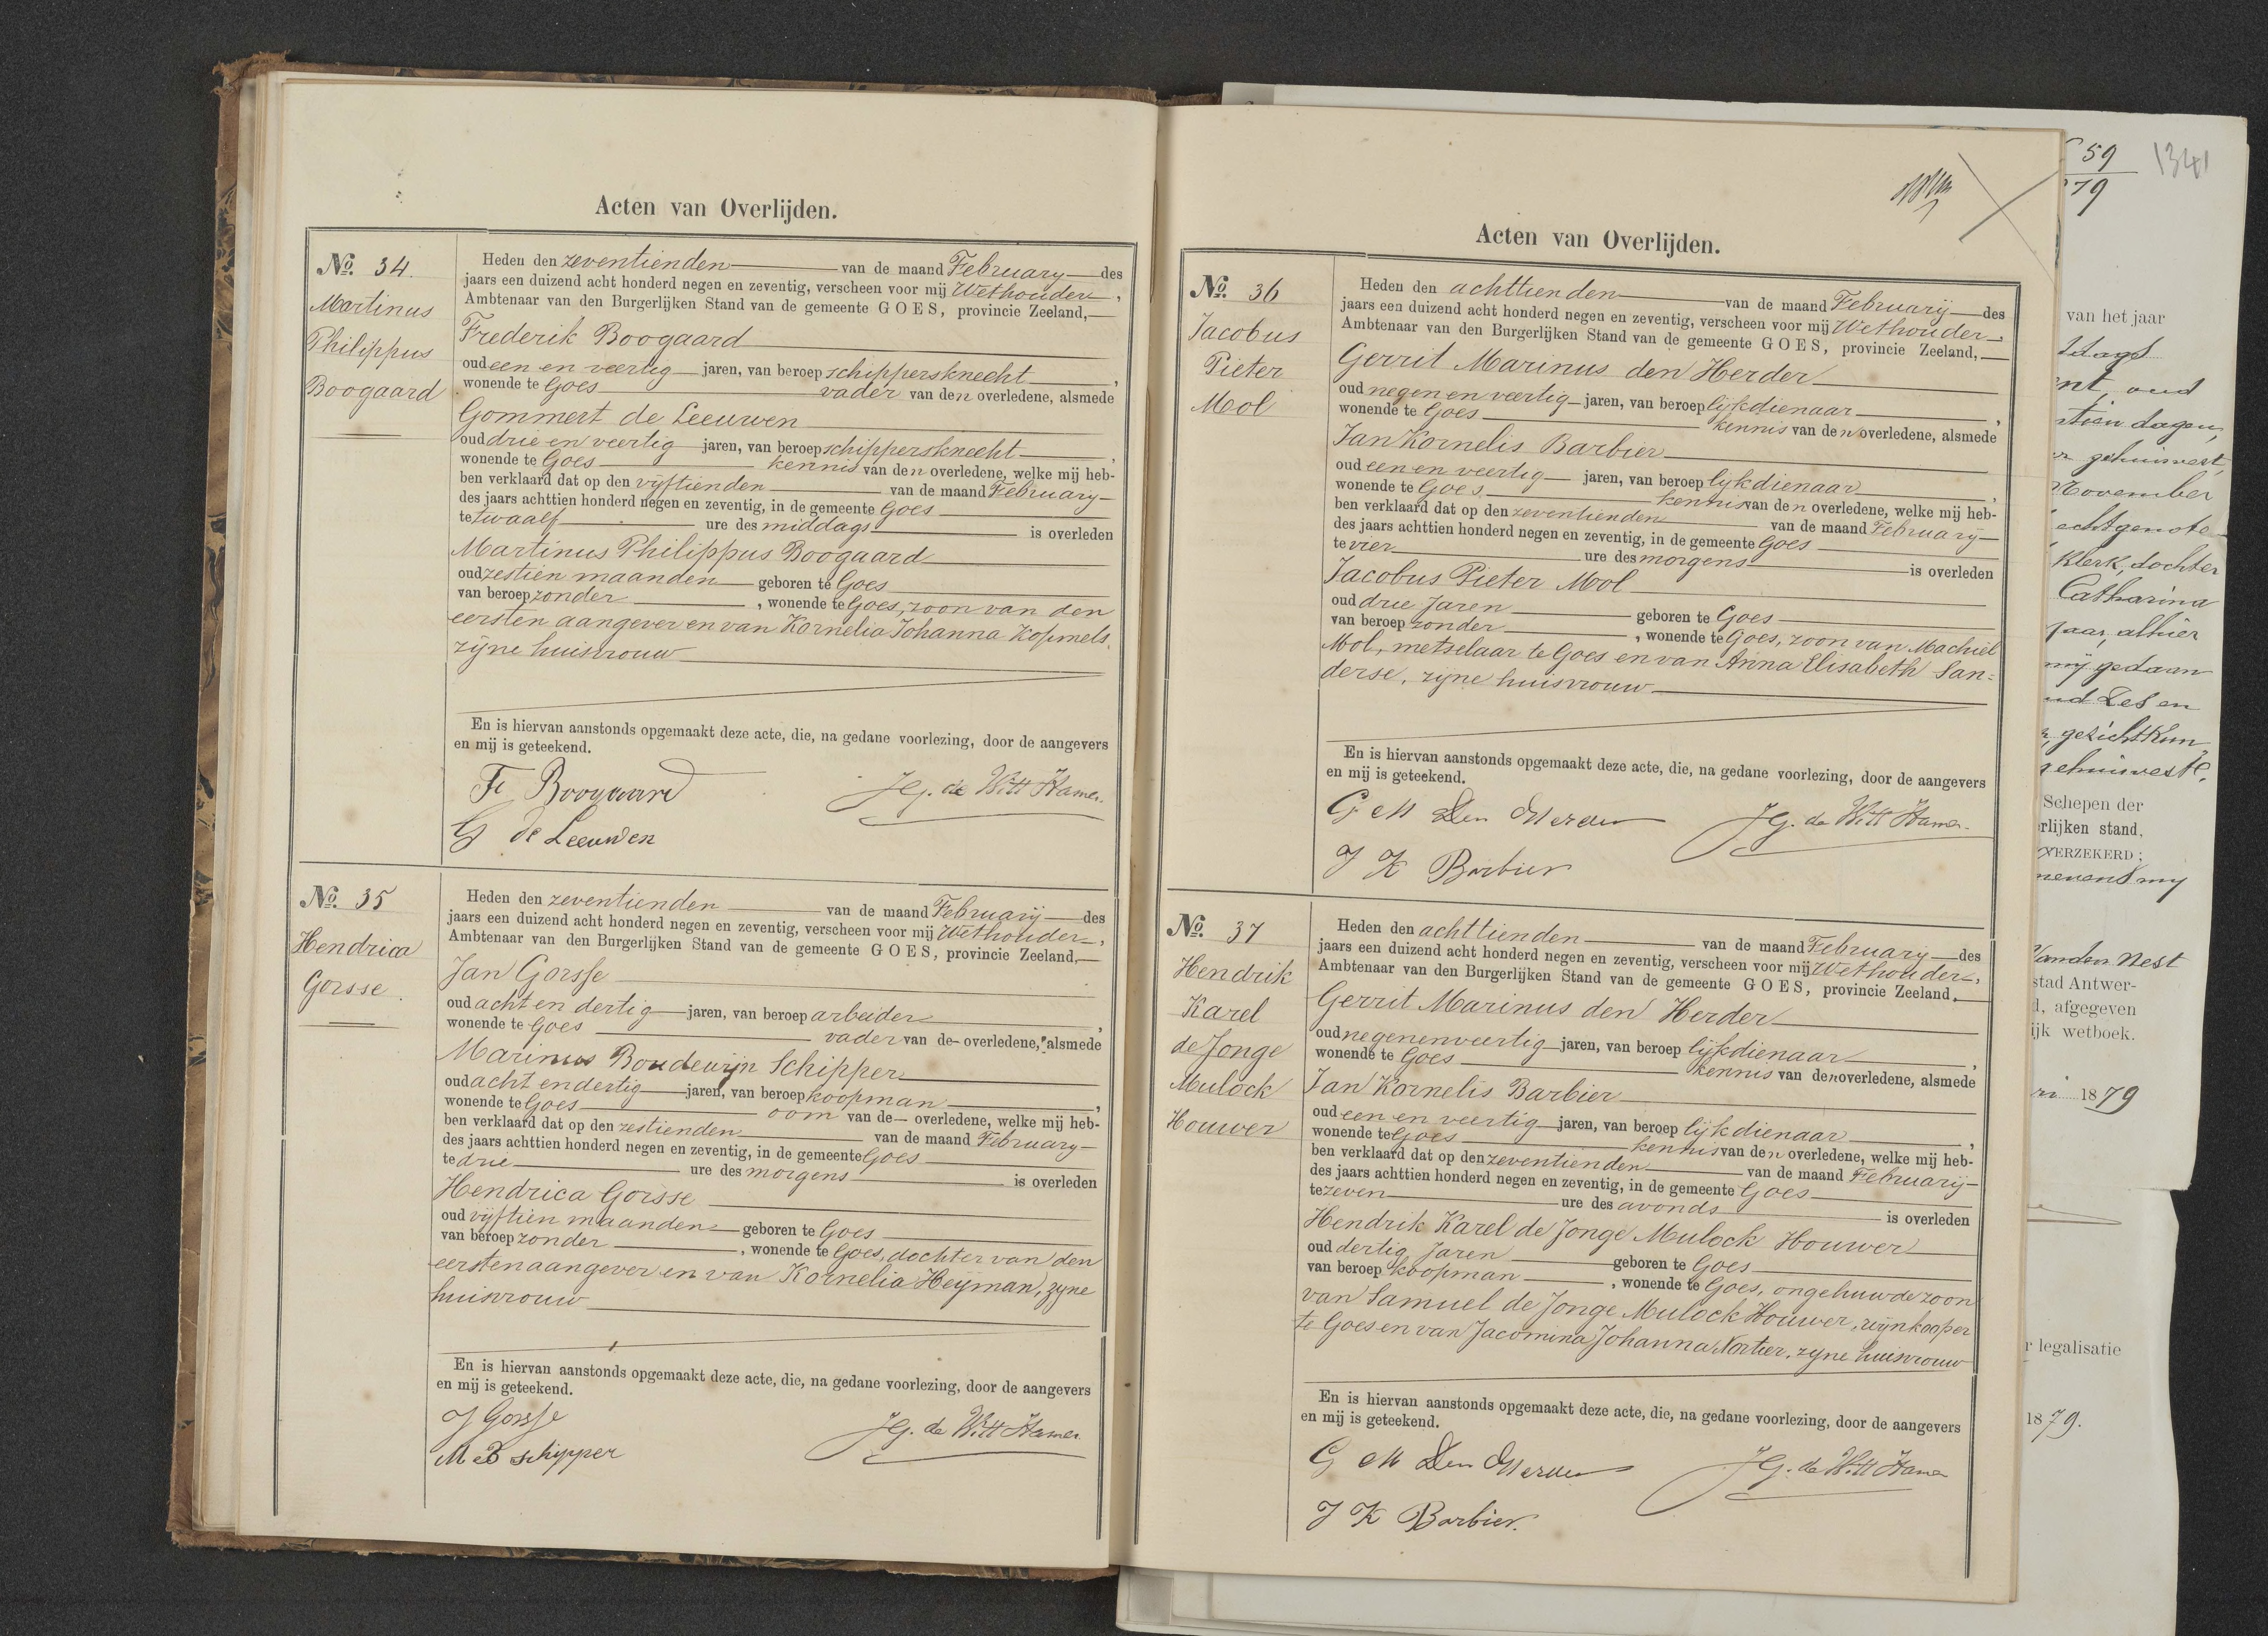 Acten van Overlijden.
No. 34.
Martinus
Philippus
Boogaard
Heden den zeventienden van de maand February des
jaars een duizend acht honderd negen en zeventig, verscheen voor mij Wethouder,
Ambtenaar van den Burgerlijken Stand van de gemeente GOES, provincie Zeeland,
Frederik Boogaard
oud een en veertig jaren, van beroep schippersknecht,
wonende te Goes vader van den overledene, alsmede
Gommert de Leeuwen
oud drie en veertig jaren, van beroep schippersknecht,
wonende te Goes kennis van den overledene, welke mij heb-
ben verklaard dat op den vijftienden van de maand February
des jaars achttien honderd negen en zeventig, in de gemeente Goes
te twaalf ure des middags is overleden
Martinus Philippus Boogaard
oud zestien maanden geboren te Goes
van beroep zonder, wonende te Goes, zoon van den
eersten aangever en van Kornelia Johanna Kopmels,
zijne huisvrouw
En is hiervan aanstonds opgemaakt deze acte, die, na gedane voorlezing, door de aangevers
en mij is geteekend.
F Boogaard
JG. de Witt Hamer.
G de Leeuwen
No. 35
Hendrica
Gorsse.
Heden den zeventienden van de maand February des
jaars een duizend acht honderd negen en zeventig, verscheen voor mij Wethouder,
Ambtenaar van den Burgerlijken Stand van de gemeente GOES, provincie Zeeland,
Jan Gorsse
oud acht en dertig jaren, van beroep arbeider,
wonende te Goes vader van de overledene, alsmede
Marinus Boudewijn Schipper
oud acht en dertig jaren, van beroep koopman,
wonende te Goes oom van de overledene, welke mij heb-
ben verklaard dat op den zestienden van de maand February
des jaars achttien honderd negen en zeventig, in de gemeente Goes
te drie ure des morgens is overleden
Hendrica Gorsse
oud vijftien maanden geboren te Goes
van beroep zonder, wonende te Goes, dochter van den
eersten aangever en van Kornelia Heijman, zijne
huisvrouw
En is hiervan aanstonds opgemaakt deze acte, die, na gedane voorlezing, door de aangevers
en mij is geteekend.
J Gorsse
JG. de Witt Hamer
M B schipper
Acten van Overlijden.
No. 36
Jacobus
Pieter
Mol
Heden den achttienden van de maand February des
jaars een duizend acht honderd negen en zeventig, verscheen voor mij Wethouder,
Ambtenaar van den Burgerlijken Stand van de gemeente GOES, provincie Zeeland,
Gerrit Marinus den Herder
oud negen en veertig jaren, van beroep lijkdienaar,
wonende te Goes kennis van den overledene, alsmede
Jan Kornelis Barbier
oud een en veertig jaren, van beroep lijkdienaar,
wonende te Goes kennis van den overledene, welke mij heb-
ben verklaard dat op den zeventienden van de maand February
des jaars achttien honderd negen en zeventig, in de gemeente Goes
te vier ure des morgens is overleden
Jacobus Pieter Mol
oud drie jaren geboren te Goes
van beroep zonder, wonende te Goes, zoon van Machiel
Mol, metselaar te Goes en van Anna Elisabeth San=
derse, zijne huisvrouw
En is hiervan aanstonds opgemaakt deze acte, die, na gedane voorlezing, door de aangevers
en mij is geteekend.
G M Den Herder
JG. de Witt Hamer.
J K Barbier
No. 37
Hendrik
Karel
de Jonge
Mulock
Houwer
Heden den achttienden van de maand February des
jaars een duizend acht honderd negen en zeventig, verscheen voor mij Wethouder,
Ambtenaar van den Burgerlijken Stand van de gemeente GOES, provincie Zeeland,
Gerrit Marinus den Herder
oud negenenveertig jaren, van beroep lijkdienaar,
wonende te Goes kennis van den overledene, alsmede
Jan Kornelis Barbier
oud een en veertig jaren, van beroep lijkdienaar,
wonende te Goes kennis van den overledene, welke mij heb-
ben verklaard dat op den zeventienden van de maand February
des jaars achttien honderd negen en zeventig, in de gemeente Goes
te zeven ure des avonds is overleden
Hendrik Karel de Jonge Mulock Houwer
oud dertig jaren geboren te Goes
van beroep koopman, wonende te Goes, ongehuwde zoon
van Samuel de Jonge Mulock Houwer, wijnkooper
te Goes en van Jacomina Johanna Nortier, zijne huisvrouw
En is hiervan aanstonds opgemaakt deze acte, die, na gedane voorlezing, door de aangevers
en mij is geteekend.
G M Den Herder
JG. de Witt Hamer
J K Barbier.
59
79
1341
van het jaar
oud
dagen,
gehuisvest,
November
echtgenote
Klerk, dochter
Catharina
jaar, alhier
mij gedaan
Zes en
gezichtkun
gehuisveste,
Schepen der
rlijken stand,
VERZEKERD;
nevens my
Vanden Nest
stad Antwer-
d, afgegeven
ijk wetboek.
ri 1879
r legalisatie
1879.